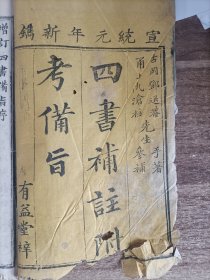 宣統元年新鐫
古岡鄧退菴
甬上仇滄柱
先生
手著
參補
四書補註附
考備旨
有益堂梓
增訂四書備旨序